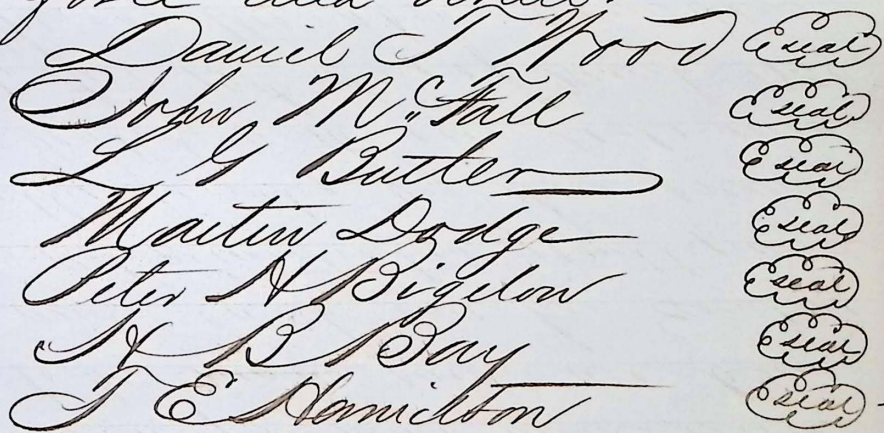 Daniel T Wood seal
John McFall seal
L G Butler seal
Martin Dodge seal
Peter H Bigelow seal
H B Bay seal
T E Hamilton seal